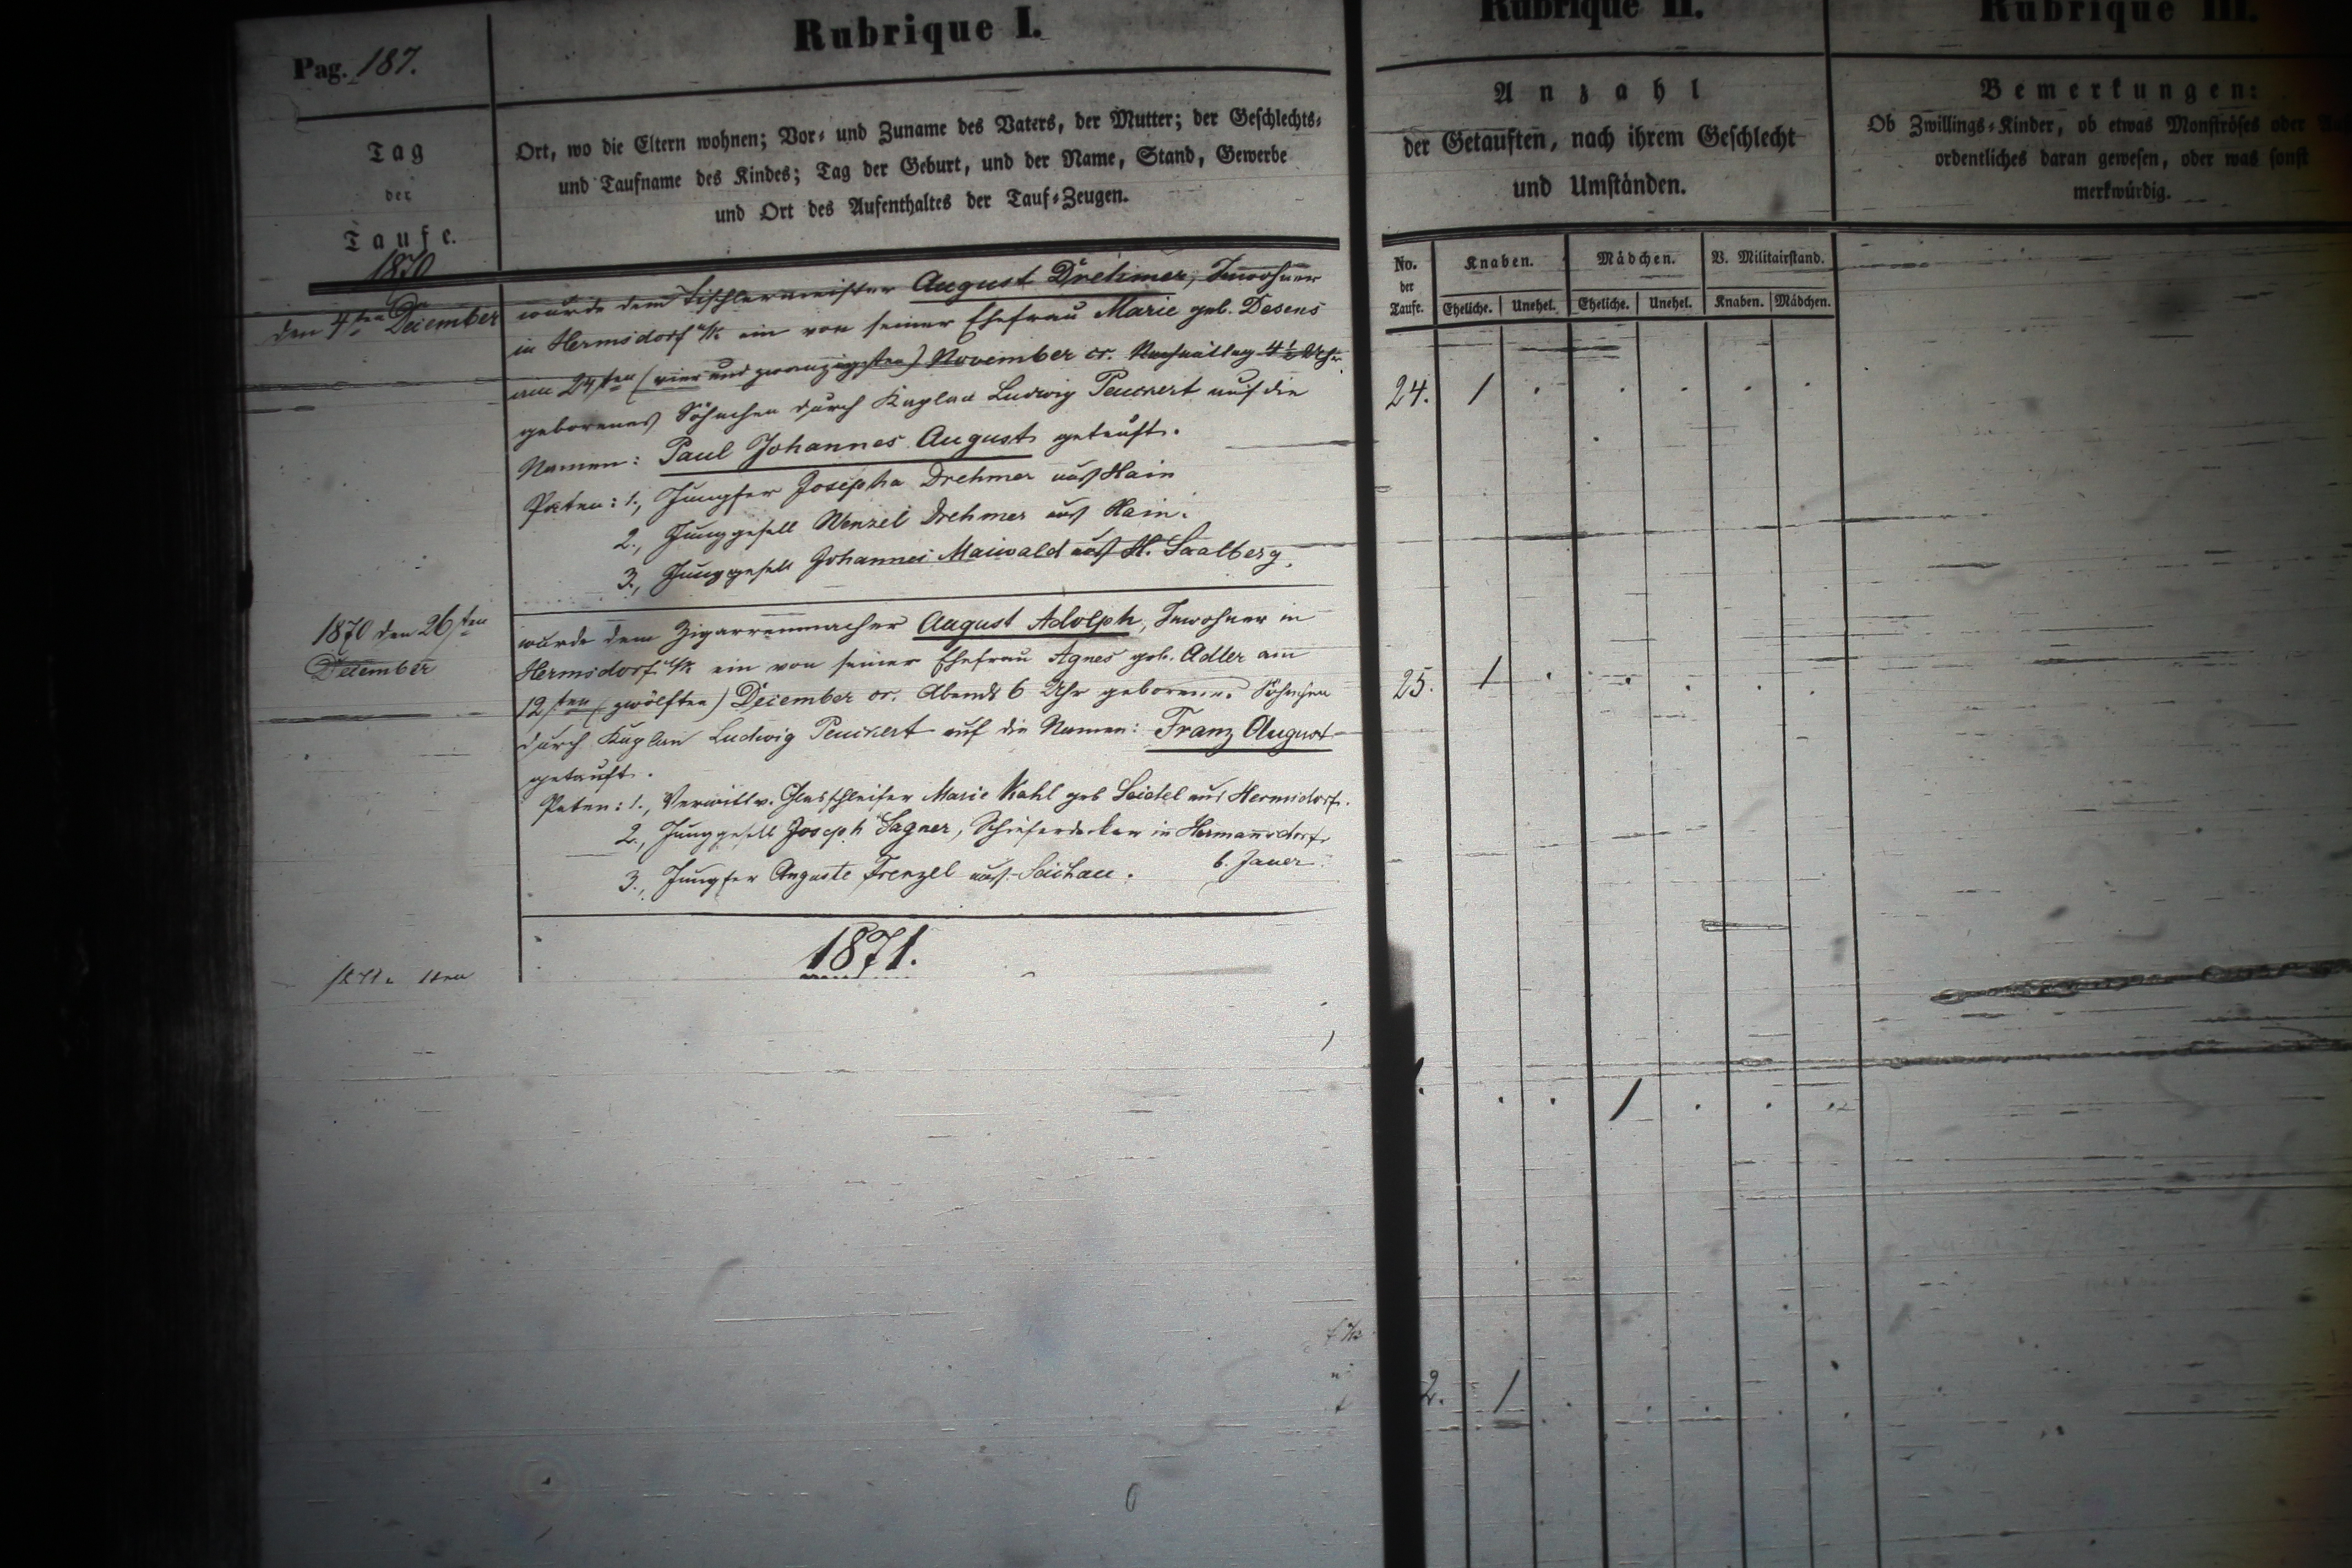 Pag. 187.
Rubrique I.
Tag
der
Taufe.
Ort, wo die Eltern wohnen; Vor- und Zuname des Vaters, der Mutter; der Geschlechts-
und Taufname des Kindes; Tag der Geburt, und der Name, Stand, Gewerbe
und Ort des Aufenthaltes der Tauf-Zeugen.
1870
den 4ten December
wurde dem Tischlermeister August Drehmer, Inwohner
in Hermsdorf u/K ein von seiner Ehefrau Marie geb. Desens
am 24sten (vier und zwanzigsten) November cr. Nachmittag 4½ Uhr
geborenes Söhnchen durch Kaplan Ludwig Peuckert auf die
Namen: Paul Johannes August getauft.
Paten: 1., Jungfer Josepha Drehmer aus Hain
2., Junggesell Wenzel Drehmer aus Hain.
3., Junggesell Johannes Maiwald aus H. Saalberg.
1870 den 26sten
December
wurde dem Zigarrenmacher August Adolph, Inwohner in
Hermsdorf u/K ein von seiner Ehefrau Agnes geb. Adler am
12ten (zwölften) December cr. Abends 6 Uhr geborenes Söhnchen
durch Kaplan Ludwig Peuckert auf die Namen: Franz August
getauft.
Paten: 1., Verwittw. Glasschleifer Marie Kahl geb Seidel aus Hermsdorf.
2., Junggesell Joseph Sagner, Schieferdecker in Hermannsdorf
b. Jauer.
3., Jungfer Auguste Frenzel aus Seichau.
1871.
Rubrique II.
Anzahl
der Getauften, nach ihrem Geschlecht
und Umständen.
No.
der
Taufe.
Knaben.
Mädchen.
V. Militairstand.
Eheliche.
Unehel.
Eheliche.
Unehel.
Knaben.
Mädchen.
24. 1 . . . . .
25. 1 . . . . .
. . 1 . . .
2. 1 . . . . .
Rubrique III.
Bemerkungen:
Ob Zwillings-Kinder, ob etwas Monströses oder
ordentliches daran gewesen, oder was sonst
merkwürdig.